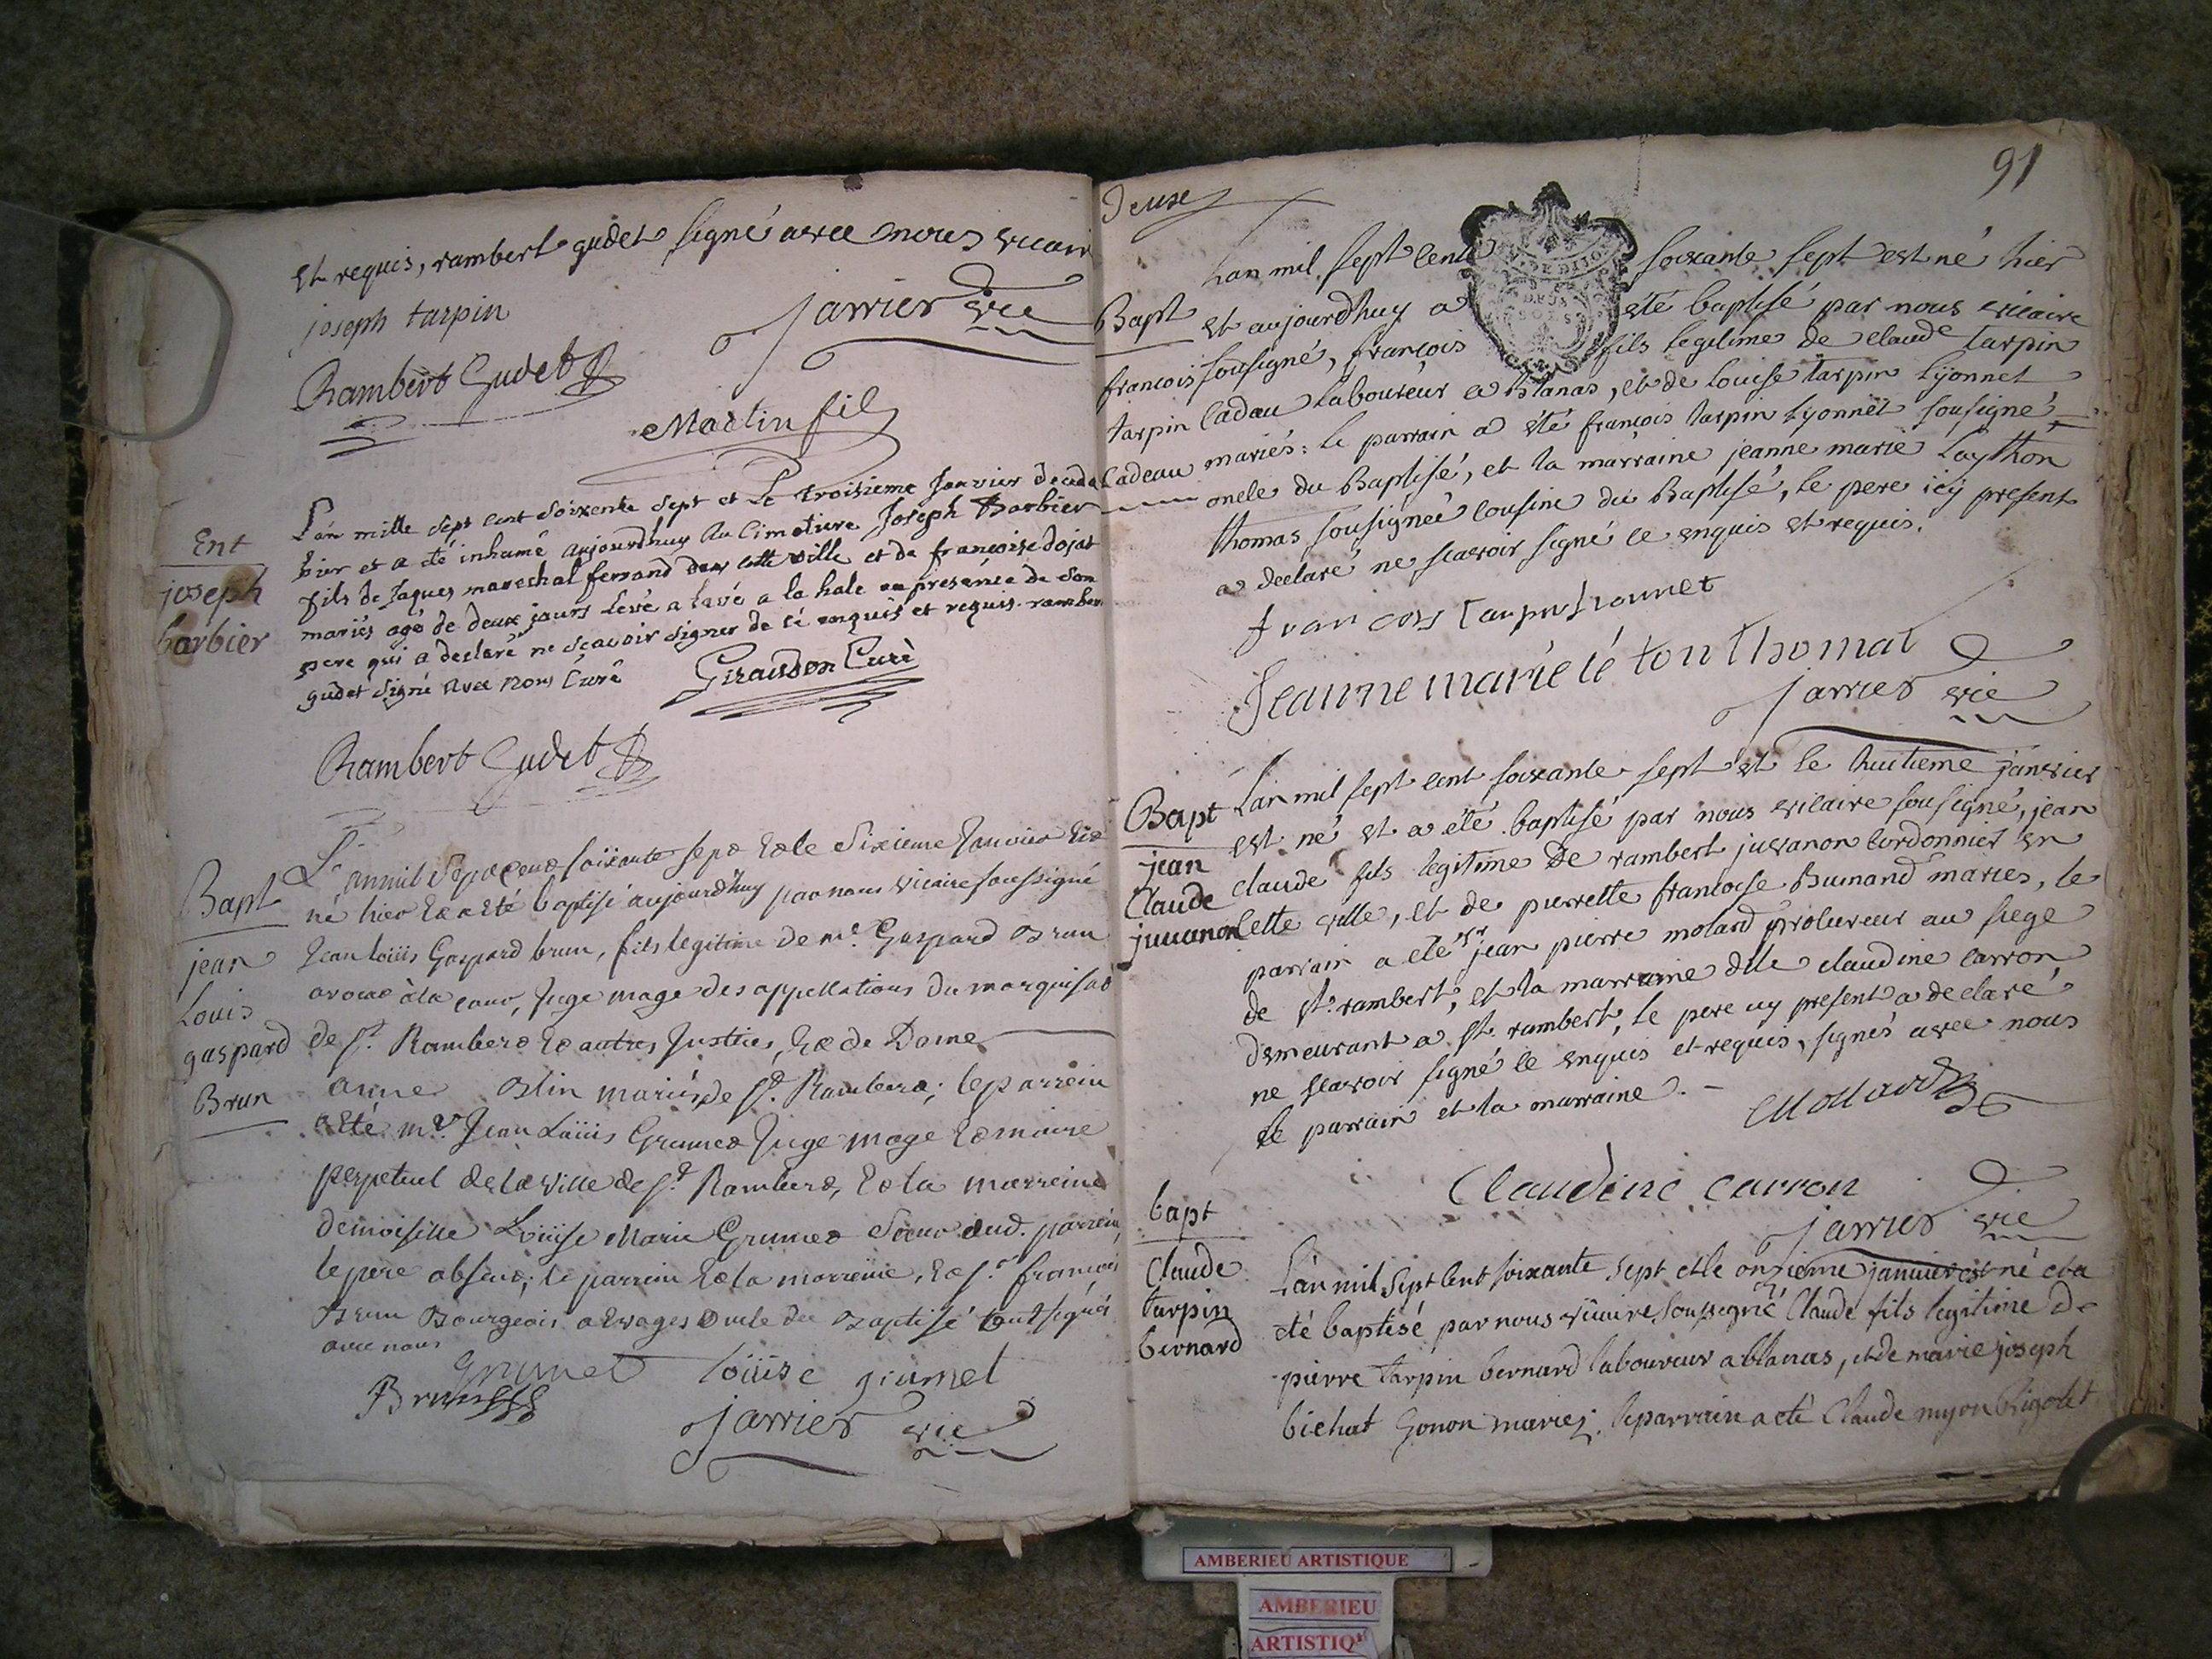 et requis, rambert gudet signé avec nous vicair
joseph tarpin
jarrier vic
Rambert Gudet
Martin fils
Ent
joseph
barbier
L'an mille sept cent soixente sept et le troisieme Janvier
hier et a été inhumé aujourdhuy au Cimetiere Joseph Barbier
fils de Jaques marechal ferrand dans cette ville et de francoise dojat
mariés agé de deux jours levé a la hale en presence de son
pere qui a declaré ne sçavoir signer de ci enquis et requis. rambert
gudet signé avec nous Curé
Giraudon Curé
Rambert Gudet
Bapt
jean
Louis
gaspard
Brun
L'an mil sept cent soixante sept et le sixieme Janvier est
né hier et a eté baptisé aujourd'huy par nous vicaire soussigné
Jean loüis Gaspard brun, fils legitime de me. Gaspard Brun
avocat à la cour, Juge mage des appellations du marquisat
de st. Rambert et autres Justices, et de Dame
anne mariés de st. Rambert; le parrein
a eté mr. Jean Loüis Grumet Juge mage et maire
perpetuel de la ville de st. Rambert, et la marreine
demoiselle Loüise Marie Grumet soeur dud. parrein,
le pere absent; le parrein et la marreine, et sr. francois
Brun Bourgeois oncle du Baptisé ont signés
avec nous
Grumet loüise grumet
Brun
jarrier vic
91
deux
Bapt
francois
tarpin
Cadeau
Lan mil sept cent soixante sept est né hier
et aujourdhuy a été baptisé par nous vicaire
sousigné, françois fils legitime de claude tarpin
Cadau Laboureur a Blanas, et de louise tarpin Lyonnet
mariés: le parrain a été françois tarpin lyonnet sousigné
oncle du Baptisé, et la marraine jeanne marie Laython
thomas sousignée cousine du Baptisé, le pere icy present
a declaré ne scavoir signé ce enquis et requis.
francois Tarpin lionnet
Jeanne marie léton Thomas
jarrier vic
Bapt
jean
Claude
juvanon
Lan mil sept cent soixante sept et le huitieme janvier
est né et a été baptisé par nous vicaire sousigné, jean
claude fils legitime de rambert juvanon cordonnier en
cette ville, et de pierrette francoise Bumand mariés, le
parrain a eté sr jean pierre molard procureur au siege
de st. rambert, et la marraine dlle claudine carron
demeurant a st. rambert, le pere icy present a declaré
ne scavoir signé ce enquis et requis, signés avec nous
le parrain et la marraine.
Mollard
Claudine carron
jarrier vic
bapt
Claude
tarpin
bernard
L'an mil sept cent soixante sept et le onzieme janvier est né et a
été baptisé par nous vicaire soussigné Claude fils legitime de
pierre tarpin bernard laboureur a blanas, et de marie joseph
bichat Gonon mariez. le parrain a eté Claude
AMBERIEU ARTISTIQUE
AMBERIEU
ARTISTIQ